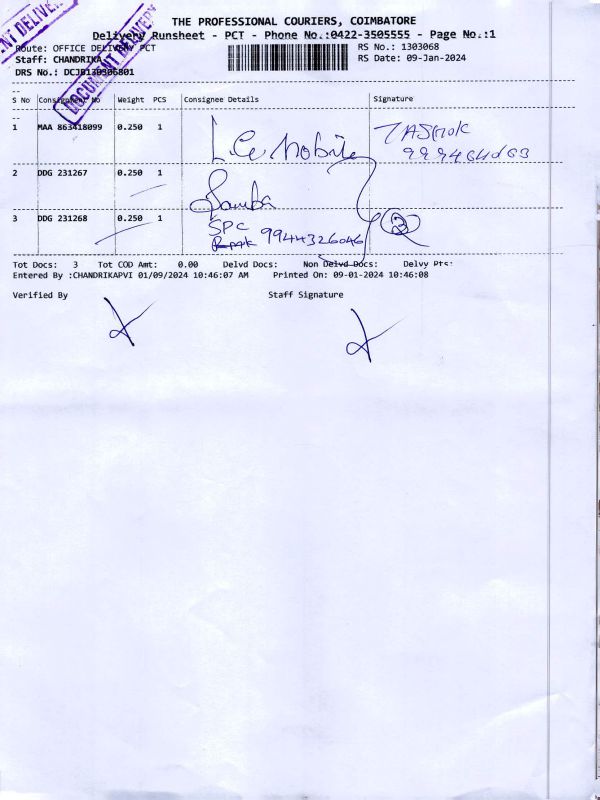 THE PROFESSIONAL COURIERS, COIMBATORE
Delivery Runsheet - PCT - Phone No.:0422-3505555 - Page No.:1
Route: OFFICE DELIVERY PCT
RS No.: 1303068
Staff: CHANDRIKA
RS Date: 09-Jan-2024
DRS No.:
DOCUMENT DELIVERY
S No Consignment No Weight PCS Consignee Details Signature
1 MAA 863418099 0.250 1
2 DDG 231267 0.250 1
3 DDG 231268 0.250 1
SPC
9944326046
Tot Docs: 3 Tot COD Amt: 0.00 Delvd Docs: Non Delvd Docs: Delvy Pts:
Entered By :CHANDRIKAPVI 01/09/2024 10:46:07 AM Printed On: 09-01-2024 10:46:08
Verified By Staff Signature